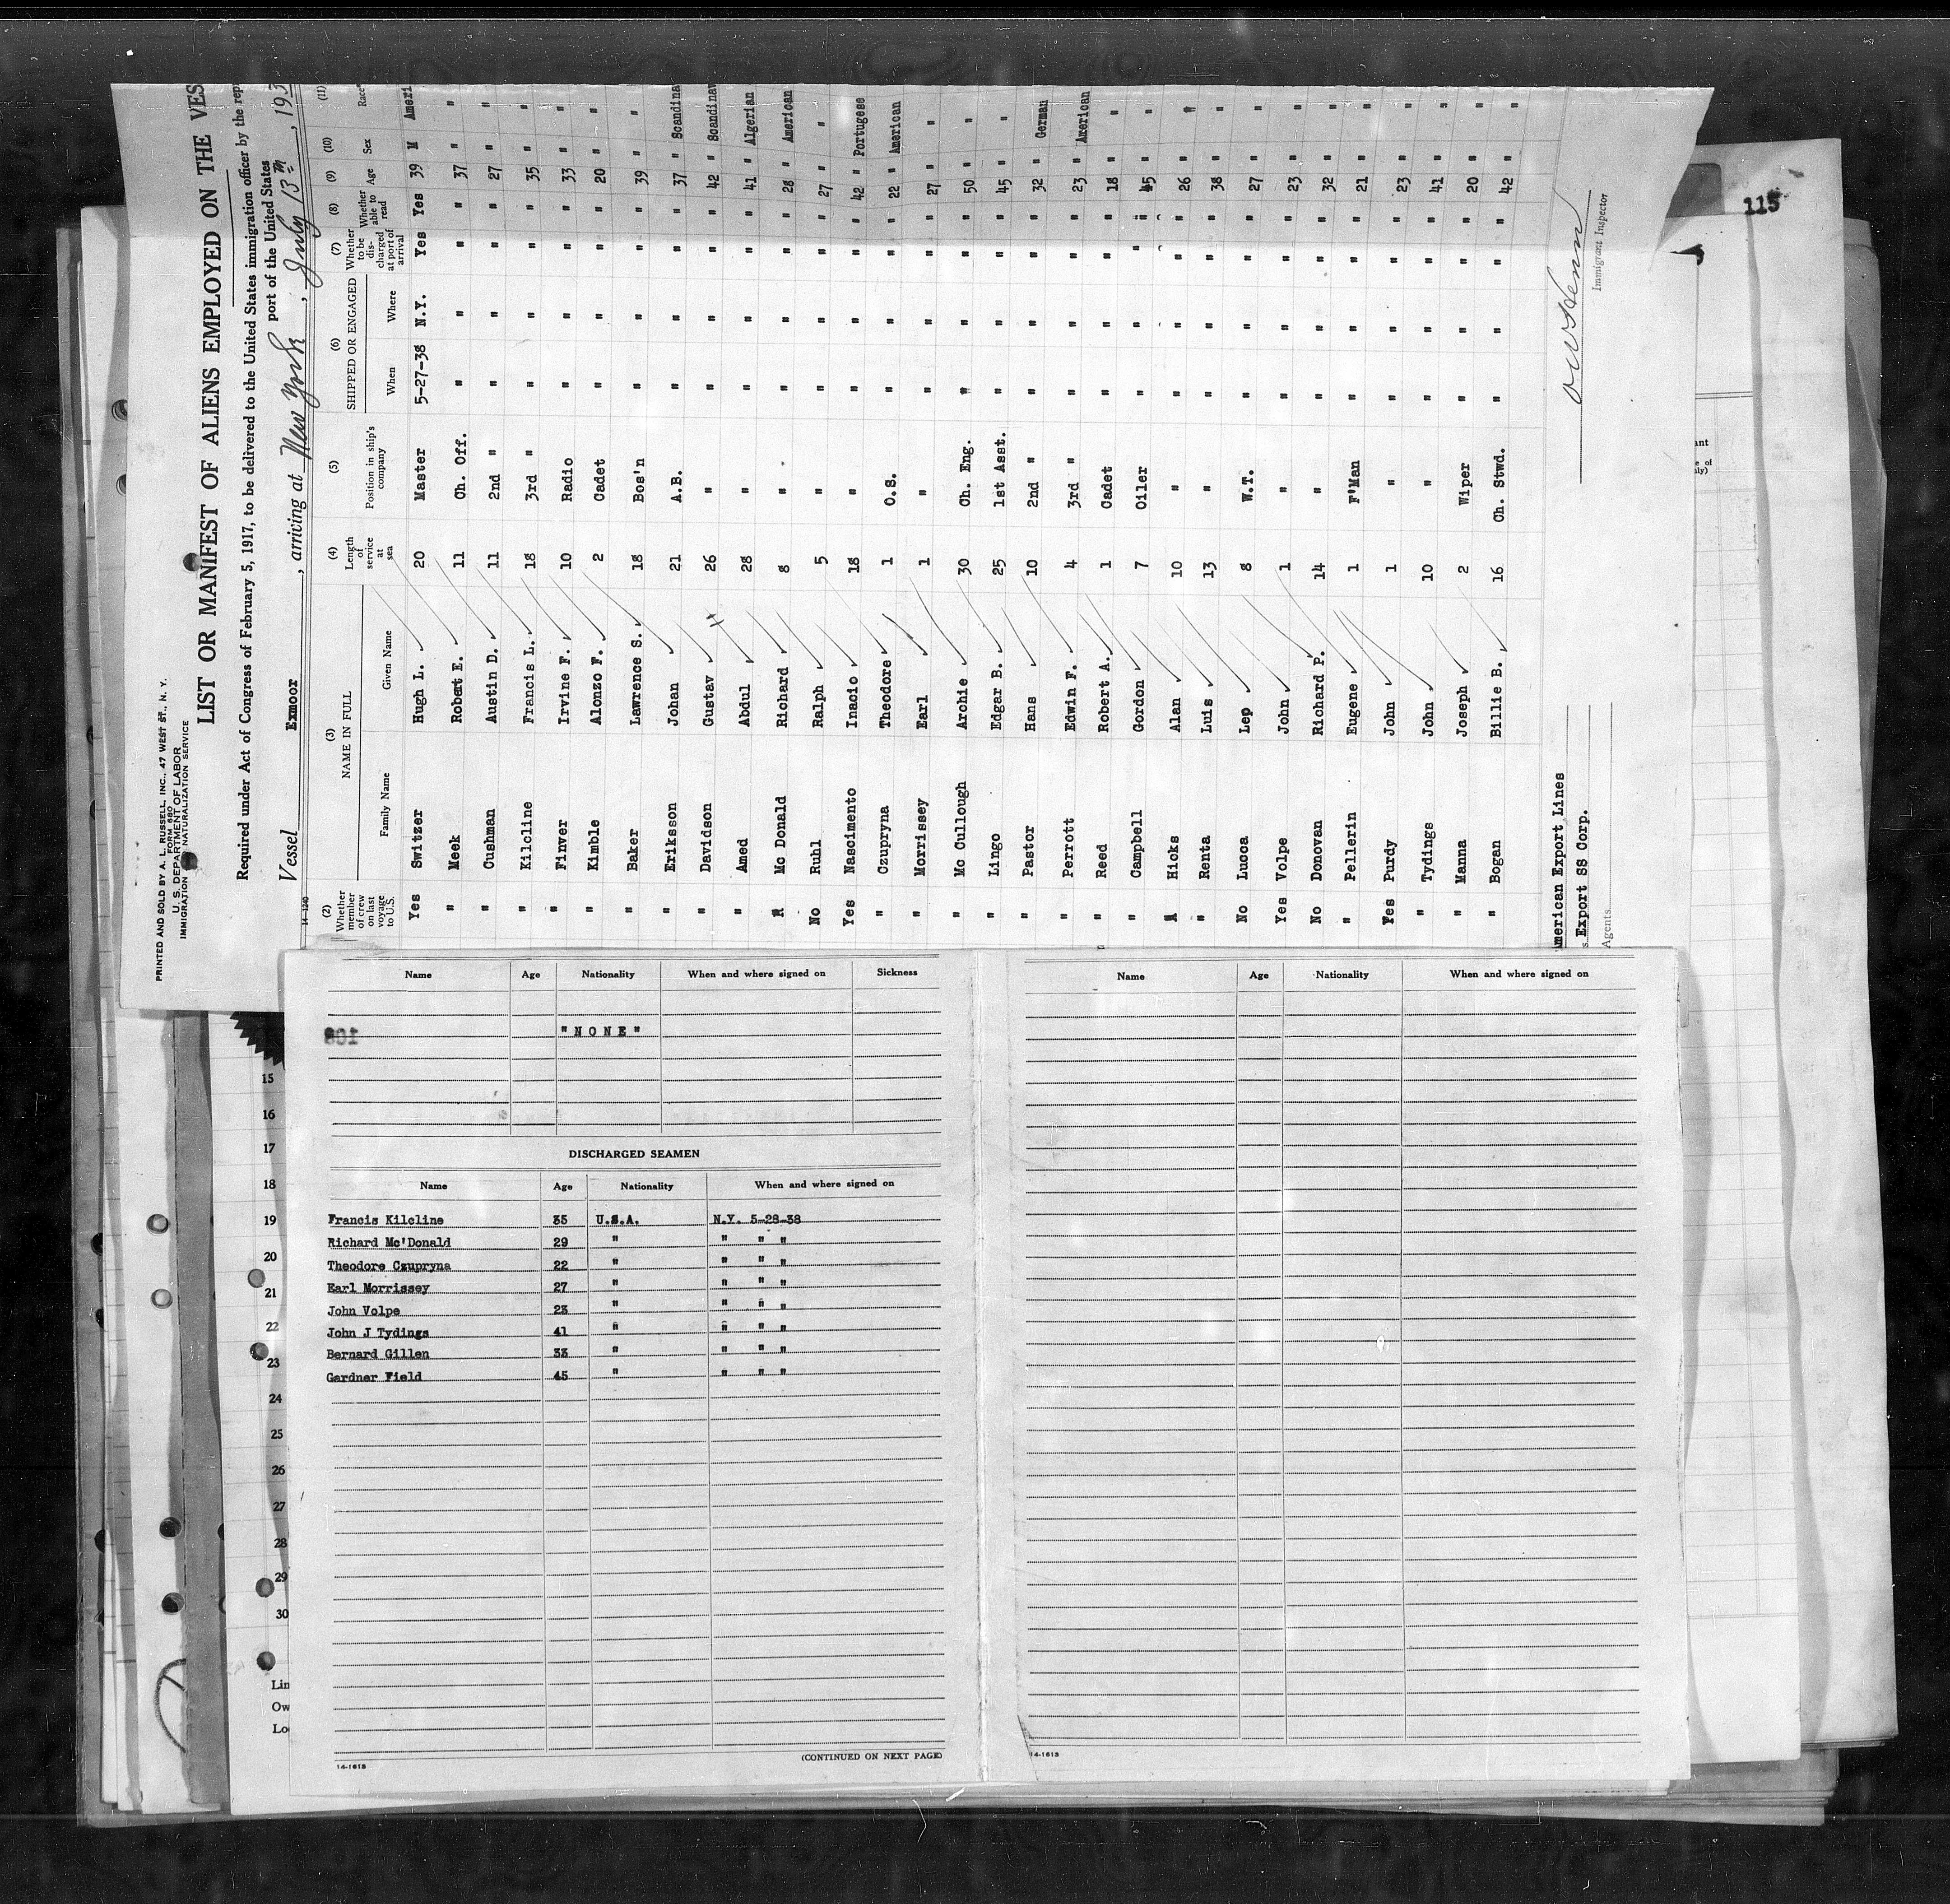 115
PRINTED AND SOLD BY A. L. RUSSELL, INC., 47 WEST ST., N. Y.
FORM 680
U. S. DEPARTMENT OF LABOR
IMMIGRATION NATURALIZATION SERVICE
LIST OR MANIFEST OF ALIENS EMPLOYED ON THE VES
Required under Act of Congress of February 5, 1917, to be delivered to the United States immigration officer by the rep
port of the United States
Vessel Exmoor, arriving at New York, July 13th, 193
(2) (3) (4) (5) (6) (7) (8) (9) (10) (11)
Whether member of crew on last voyage to U.S. NAME IN FULL Family Name Given Name Length of service at sea Position in ship's company SHIPPED OR ENGAGED When Where Whether to be discharged at port of arrival Whether able to read Age Sex Race
Yes Switzer Hugh L. 20 Master 5-27-38 N.Y. Yes Yes 39 M Ameri
" Meek Robert E. 11 Ch. Off. " " " " 37 " "
" Cushman Austin D. 11 2nd " " " " " 27 " "
" Kilcline Francis L. 18 3rd " " " " " 35 " "
" Finver Irvine F. 10 Radio " " " " 33 " "
" Kimble Alonzo F. 2 Cadet " " " " 20 " "
" Baker Lawrence S. 18 Bos'n " " " " 39 " "
" Eriksson Johan 21 A.B. " " " " 37 " Scandina
" Davidson Gustav 26 " " " " " 42 " Scandinav
" Amed Abdul 28 " " " " " 41 " Algerian
Mc Donald Richard 8 " " " " " 28 " American
No Ruhl Ralph 5 " " " " " 27 " "
Yes Nascimento Inacio 18 " " " " " 42 " Portugese
" Czupryna Theodore 1 O.S. " " " " 22 " American
" Morrissey Earl 1 " " " " " 27 " "
" Mc Cullough Archie 30 Ch. Eng. " " " " 50 " "
" Lingo Edgar B. 25 1st Asst. " " " " 45 " "
" Pastor Hans 10 2nd " " " " " 32 " German
" Perrott Edwin F. 4 3rd " " " " " 23 " American
" Reed Robert A. 1 Cadet " " " " 18 " "
" Campbell Gordon 7 Oiler " " " " 45 " "
Hicks Alan 10 " " " " " 26 " "
" Renta Luis 13 " " " " " 38 " "
No Lucca Lep 8 W.T. " " " " 27 " "
Yes Volpe John 1 " " " " " 23 " "
No Donovan Richard P. 14 " " " " " 32 " "
" Pellerin Eugene 1 F'Man " " " " 21 " "
Yes Purdy John 1 " " " " " 23 " "
" Tydings John 10 " " " " " 41 " "
" Manna Joseph 2 Wiper " " " " 20 " "
" Bogan Billie B. 16 Ch. Stwd. " " " " 42 " "
merican Export Lines
Export SS Corp.
Agents
Immigrant Inspector
Name Age Nationality When and where signed on Sickness
"NONE"
DISCHARGED SEAMEN
Name Age Nationality When and where signed on
Francis Kilcline 35 U.S.A. N.Y. 5-28-38
Richard Mc'Donald 29 " " " "
Theodore Czupryna 22 " " " "
Earl Morrissey 27 " " " "
John Volpe 23 " " " "
John J Tydings 41 " " " "
Bernard Gillen 33 " " " "
Gardner Field 45 " " " "
(CONTINUED ON NEXT PAGE)
14-1613
Name Age Nationality When and where signed on
14-1613
15
16
17
18
19
20
21
22
23
24
25
26
27
28
29
30
Lin
Ow
Lo